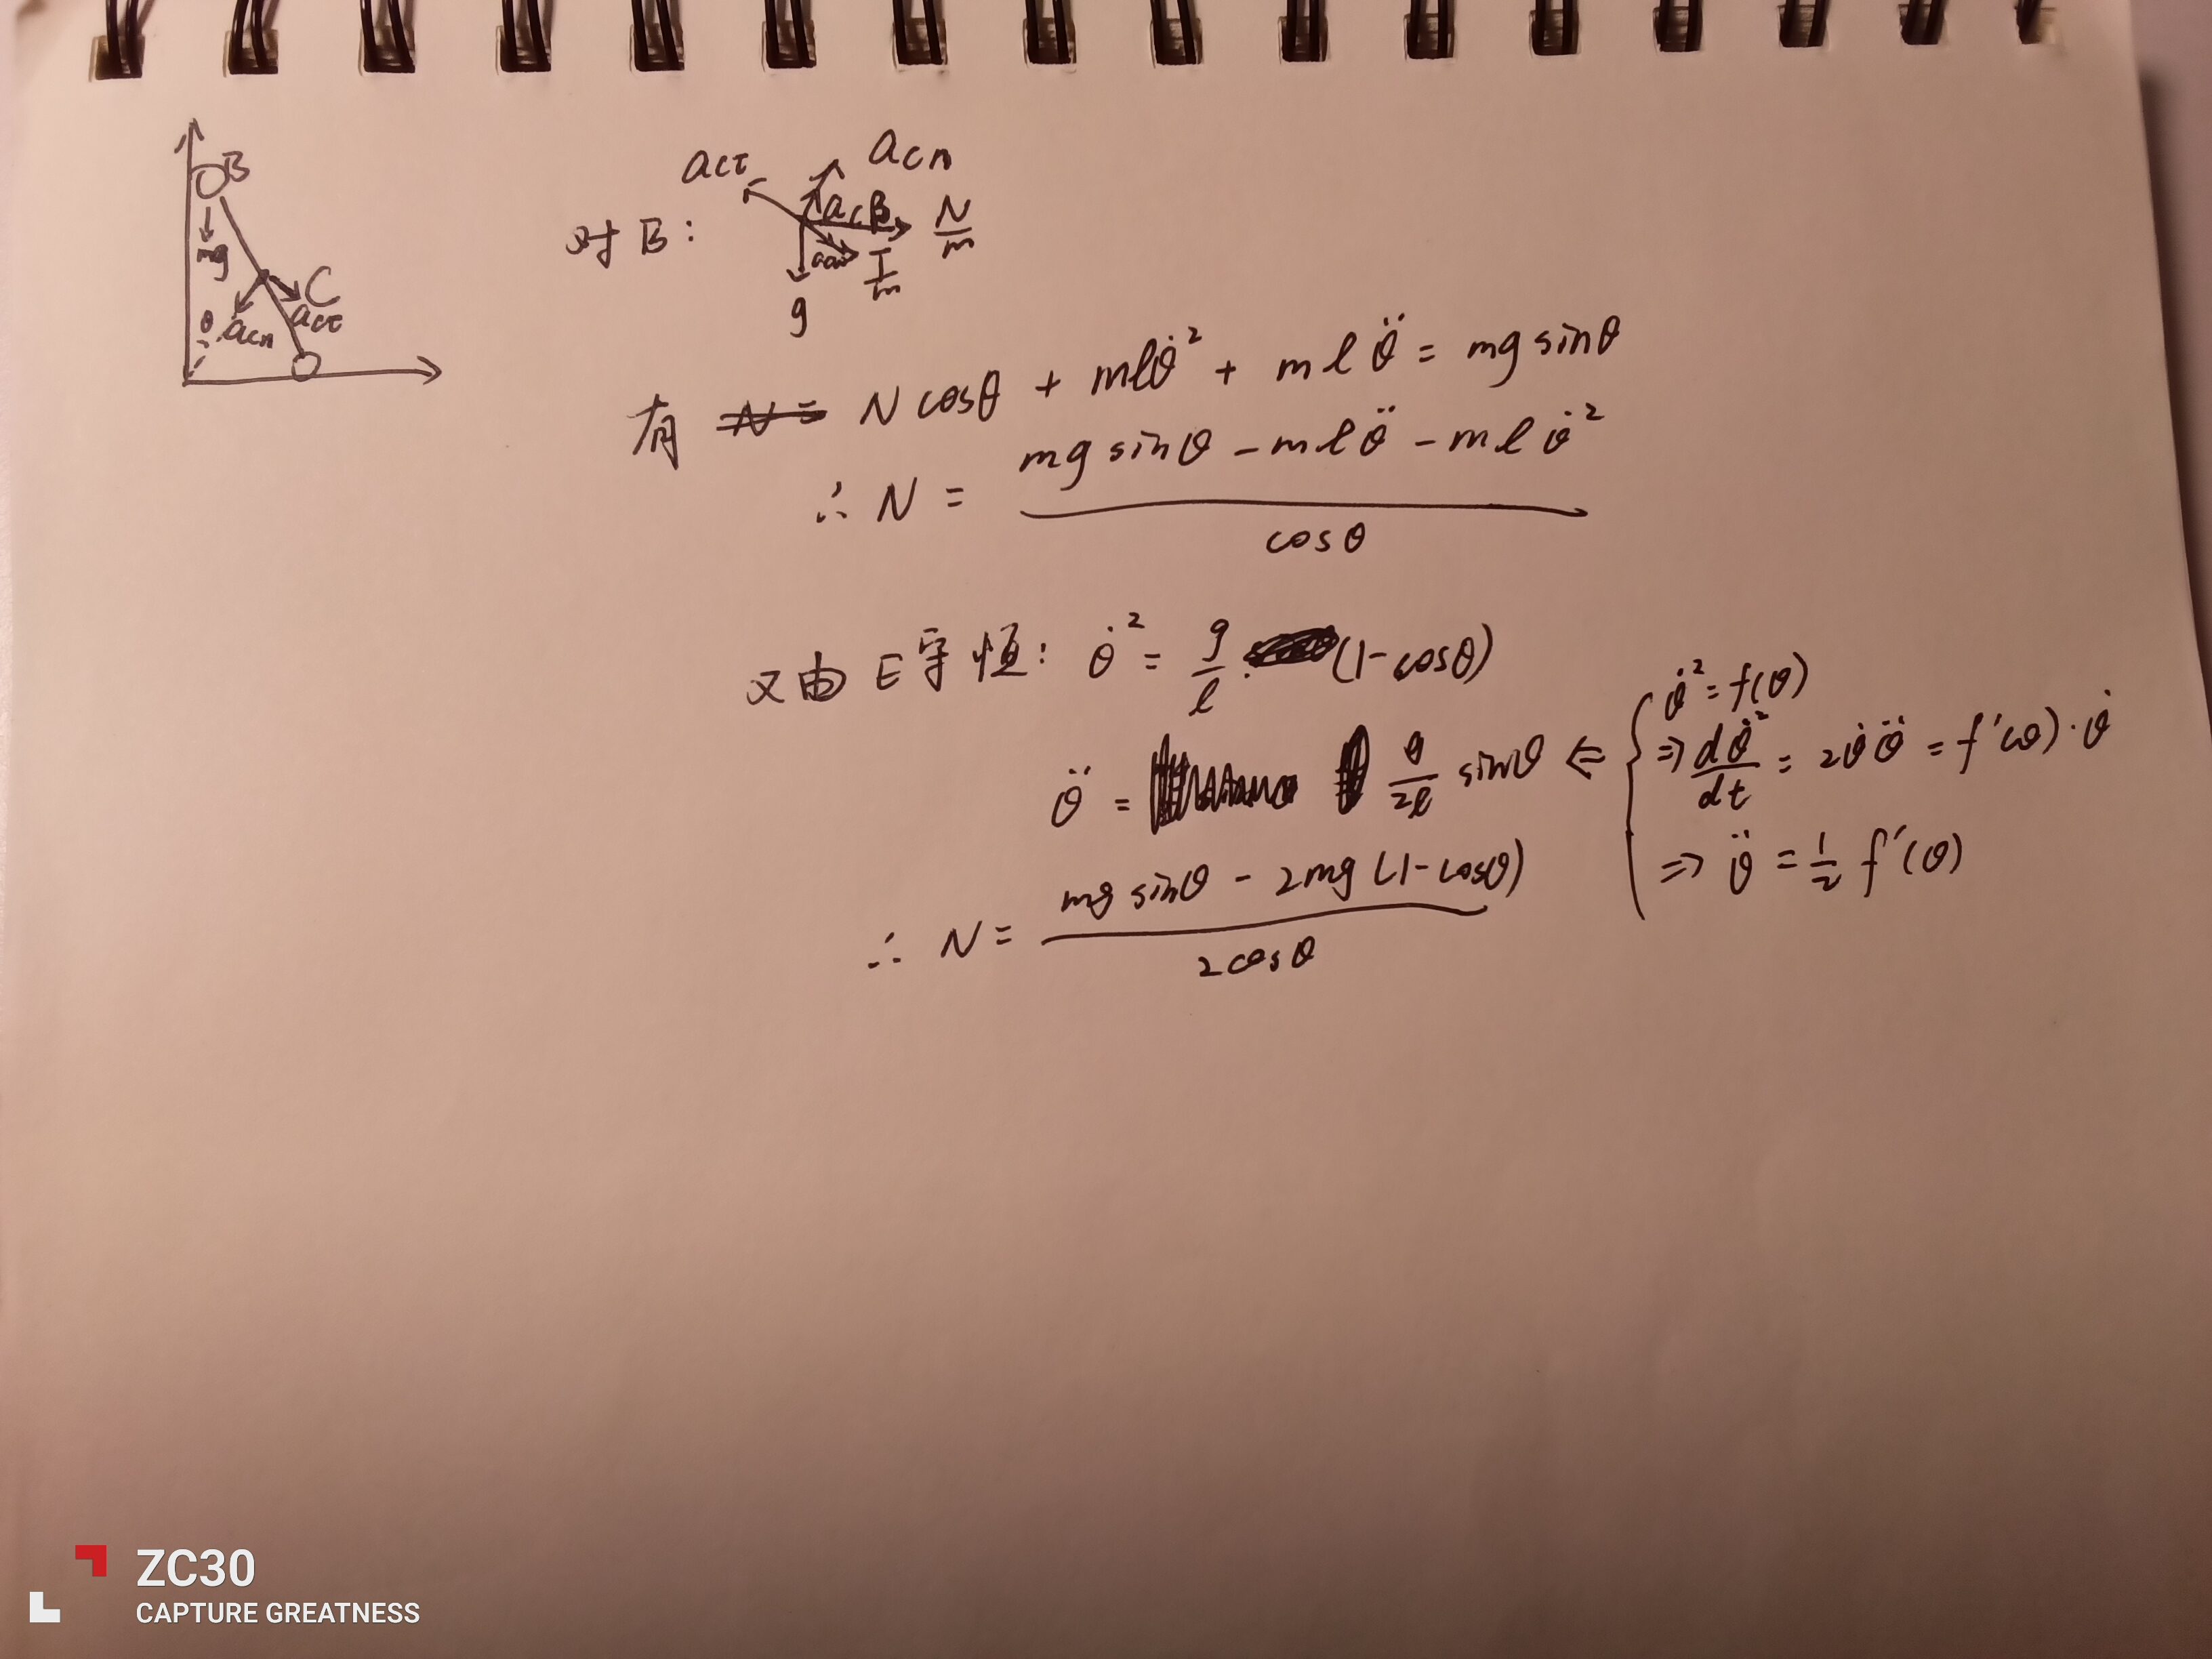 B
mg
C
θ
acn
acτ
对B:
acτ
acn
acB
N/m
T/m
g
有 Ncosθ + mlθ̇² + mlθ̈ = mg sinθ
∴ N = (mg sinθ - mlθ̈ - mlθ̇²) / cosθ
又由E守恒: θ̇² = g/l · (1-cosθ)
θ̈ = g/2l sinθ ⇐
θ̇² = f(θ)
⇒ dθ̇²/dt = 2θ̇θ̈ = f'(θ)·θ̇
⇒ θ̈ = 1/2 f'(θ)
∴ N = (mg sinθ - 2mg(1-cosθ)) / 2cosθ
ZC30
CAPTURE GREATNESS